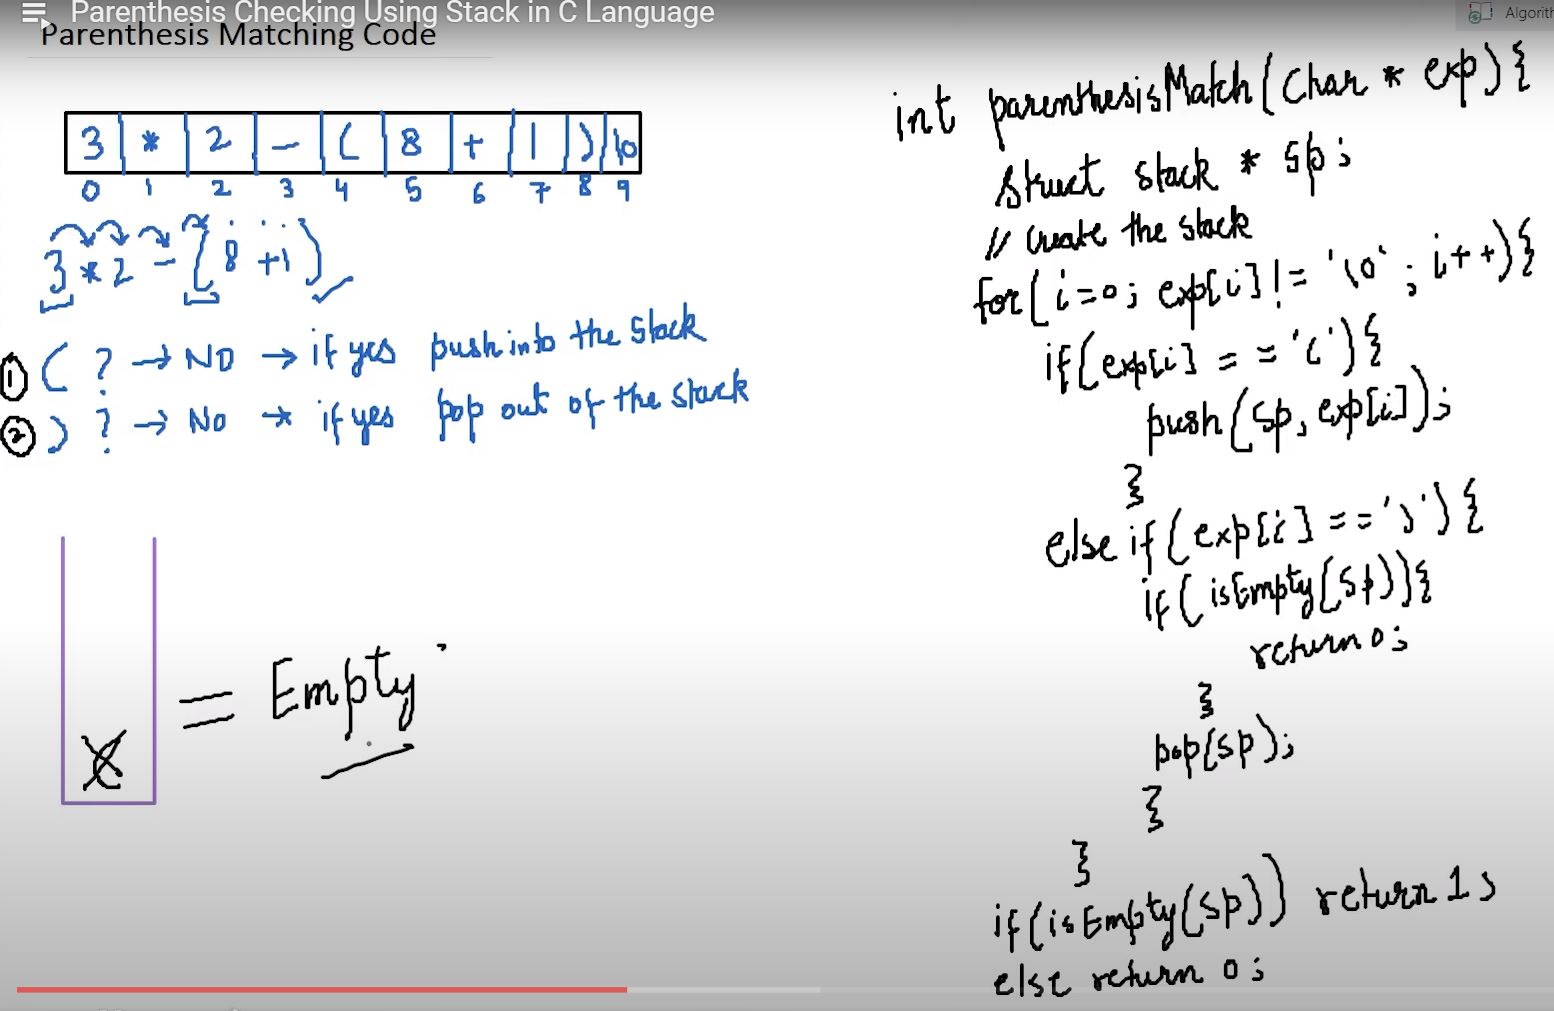 Parenthesis Checking Using Stack in C Language
Algorith
Parenthesis Matching Code
3 * 2 - ( 8 + 1 ) \0
0 1 2 3 4 5 6 7 8 9
3 * 2 - ( 8 + 1 )
① ( ? → NO → if yes push into the stack
② ) ? → No → if yes pop out of the stack
(
= Empty
int parenthesisMatch(Char * exp){
Struct stack * sp;
// Create the stack
for(i=0; exp[i]!='\0'; i++){
if(exp[i] == '('){
push(sp, exp[i]);
}
else if(exp[i]==')'){
if(isEmpty(sp)){
return 0;
}
pop(sp);
}
}
if(isEmpty(sp)) return 1;
else return 0;